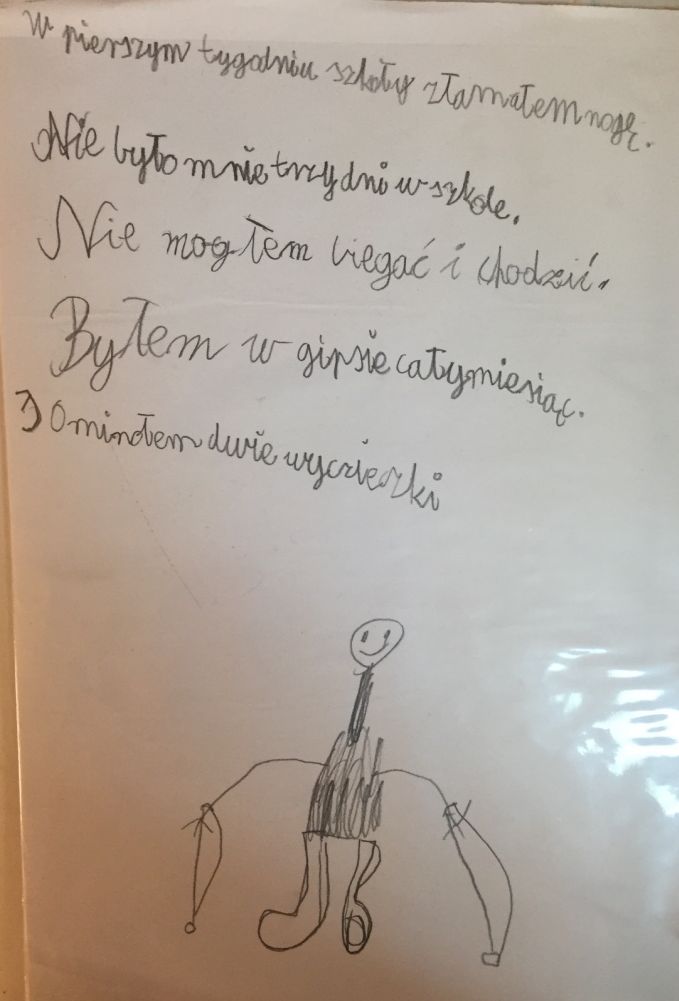 W pierszym tygodniu szkoły złamałem nogę.
Nie było mnie trzy dni w szkole.
Nie mogłem biegać i chodzić.
Byłem w gipsie cały miesiąc.
Ominołem dwie wycieszki